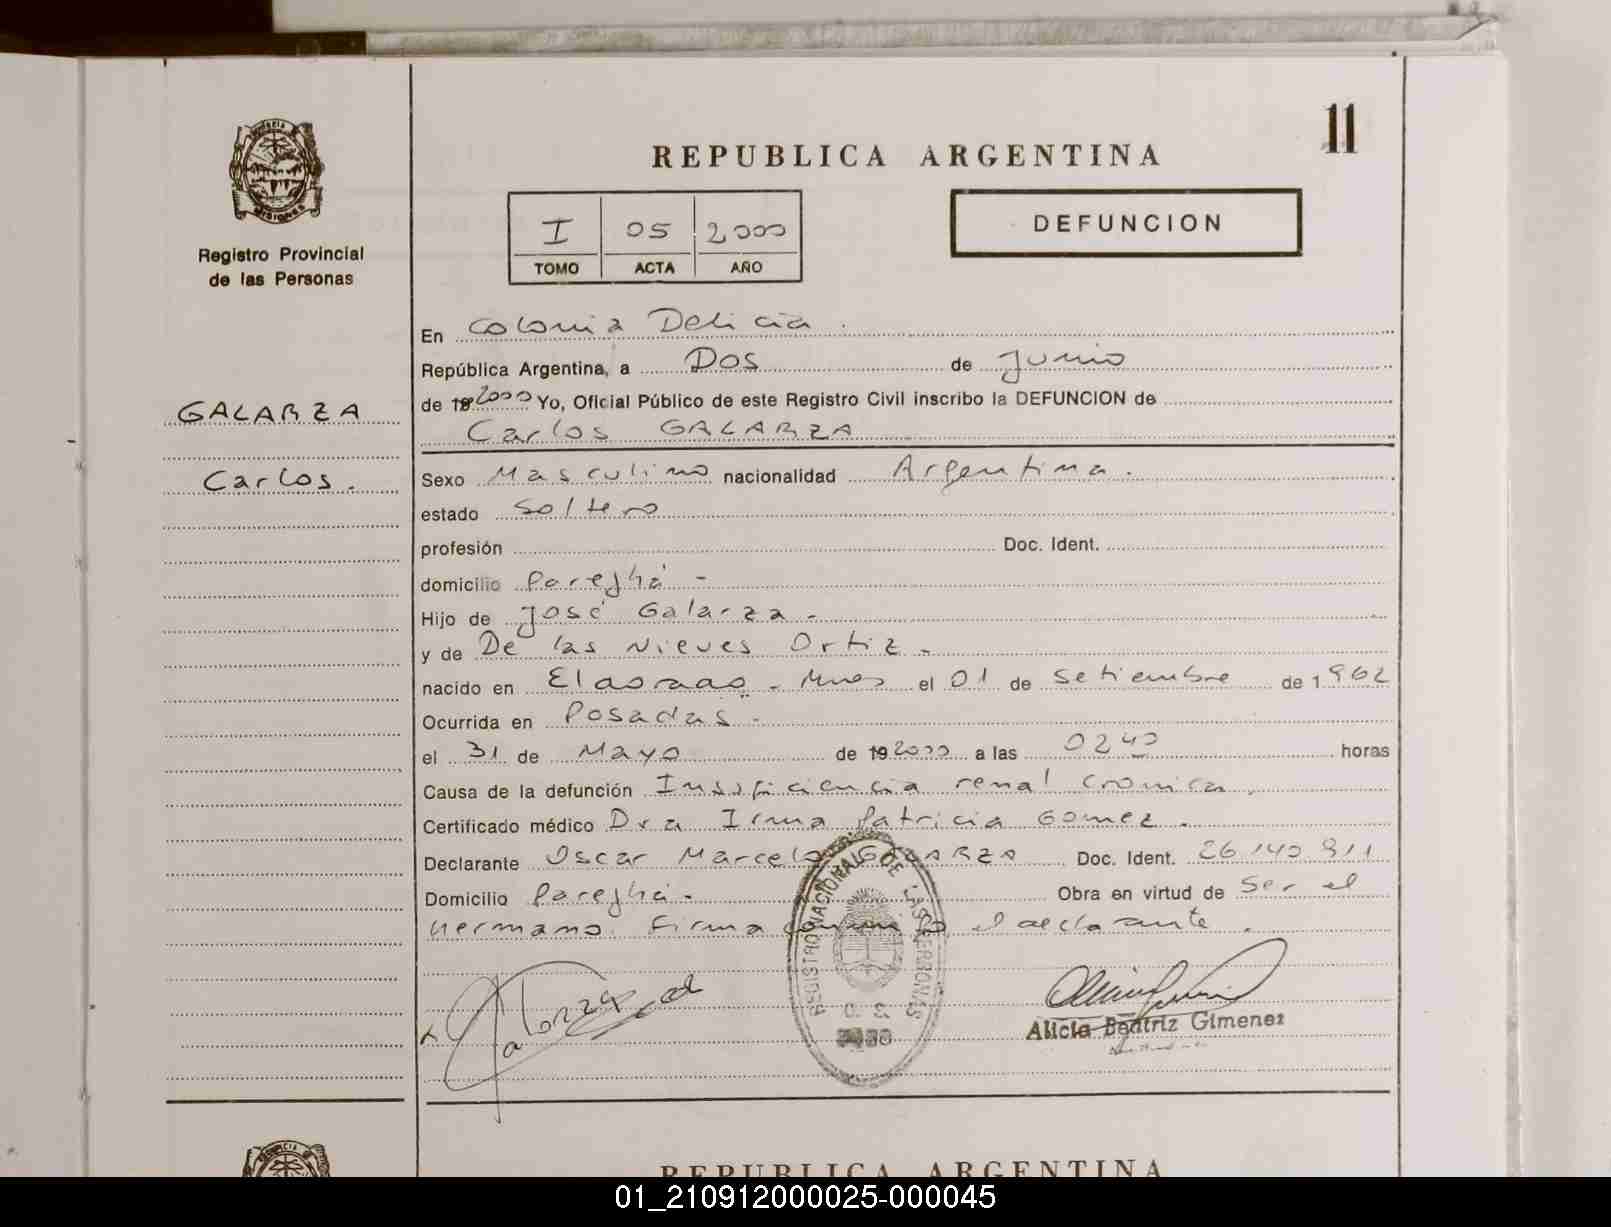 11
REPUBLICA ARGENTINA
PROVINCIA DE
MISIONES
Registro Provincial
de las Personas
I 05 2000
TOMO ACTA AÑO
DEFUNCION
GALARZA
Carlos.
En Colonia Delicia.
República Argentina, a Dos de Junio
de 19 2000 Yo, Oficial Público de este Registro Civil inscribo la DEFUNCION de
Carlos GALARZA
Sexo Masculino nacionalidad Argentina.
estado Soltero
profesión Doc. Ident.
domicilio Pareghá -
Hijo de José Galarza -
y de De las Nieves Ortiz -
nacido en Eldorado - Mnes el 01 de Setiembre de 1962
Ocurrida en Posadas -
el 31 de Mayo de 19 2000 a las 0240 horas
Causa de la defunción Insuficiencia renal cronica.
Certificado médico Dra Irma Patricia Gomez.
Declarante Oscar Marcelo GALARZA Doc. Ident. 26140911
Domicilio Pareghá - Obra en virtud de Ser el
Hermano. Firma conmigo el declarante.
REGISTRO NACIONAL DE LAS PERSONAS
Alicia Beatriz Gimenez
REPUBLICA ARGENTINA
01_210912000025-000045